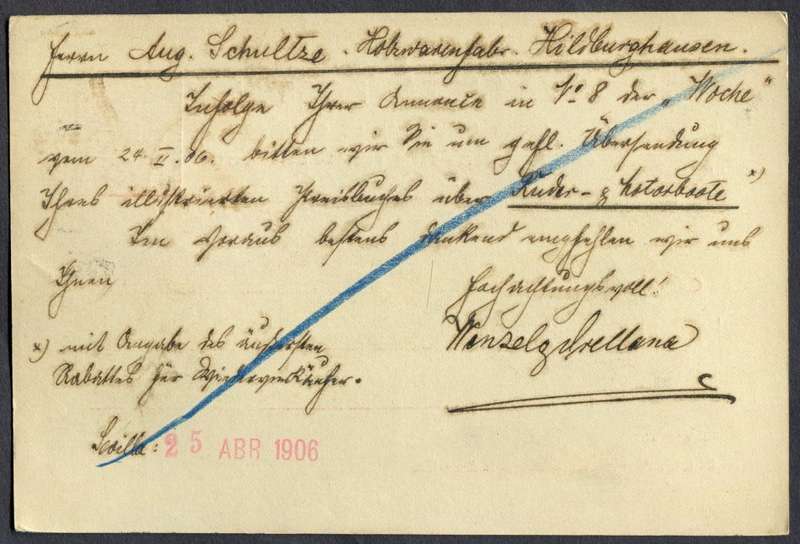 Herrn Aug. Schultze. Holzwarenfabr. Hildburghausen.
Infolge Ihrer Annonce in No 8 der „Woche"
vom 24. II. 06. bitten wir Sie um gefl. Übersendung
Ihres illustrierten Preisbuches über Ruder- & Motorboote" x)
Im Voraus bestens dankend empfehlen wir uns
Ihnen hochachtungsvoll!
x) mit Angabe des äußersten
Rabattes für Wiederverkäufer.
Wenzel & Orellana
Sevilla: 25 ABR 1906